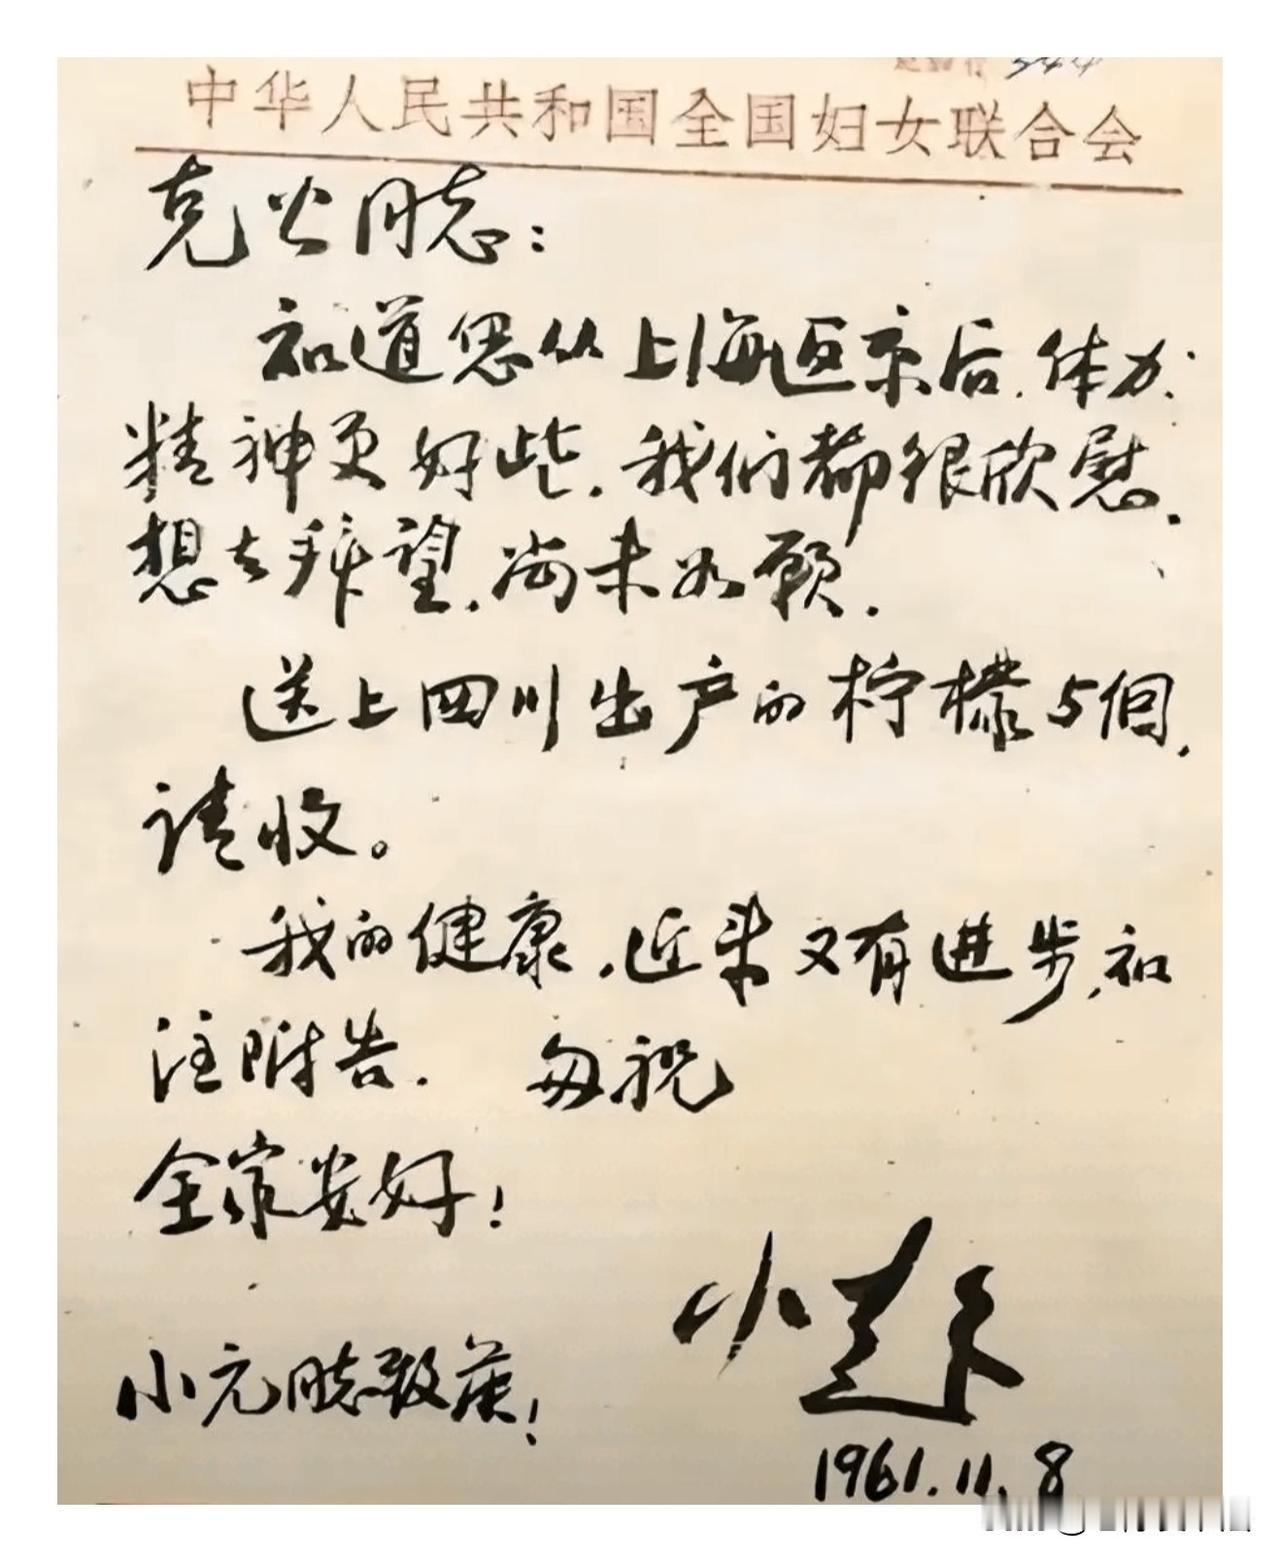 中华人民共和国全国妇女联合会
克公同志：
知道您从上海返京后，体力、
精神更好些，我们都很欣慰。
想去拜望，尚未如愿。
送上四川出产的柠檬5個，
请收。
我的健康，近来又有进步，知
注附告。 敬祝
全家安好！
小超
小元同志致候！
1961.11.8